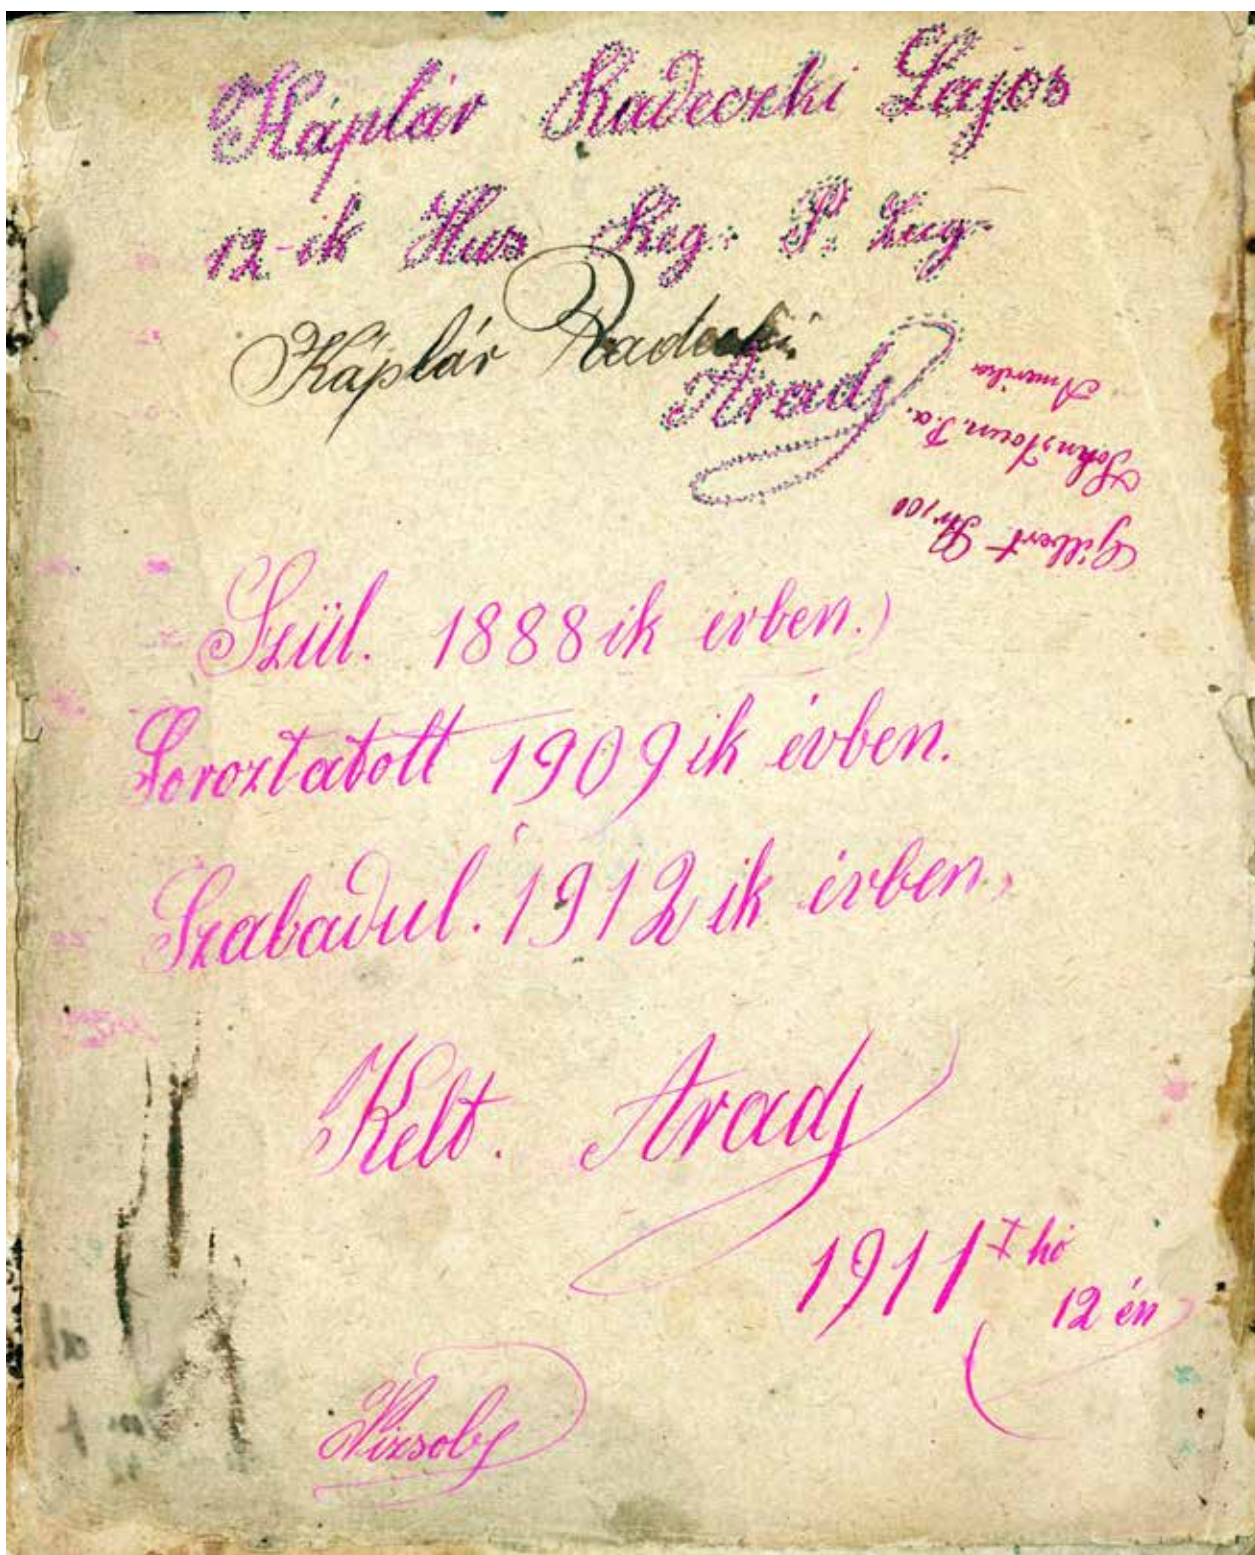 Káplár Radeczki Lajos
12-ik Hus Reg. P. Zug.
Káplár Radecki
Arad
Gilbert Str, 100
Johnstown. P.a.
Amerika
Szül. 1888 ik évben.
Soroztatott 1909 ik évben.
Szabadul. 1912 ik évben,
Kelt. Arad
1911 I hó
12 én
Vizsoly